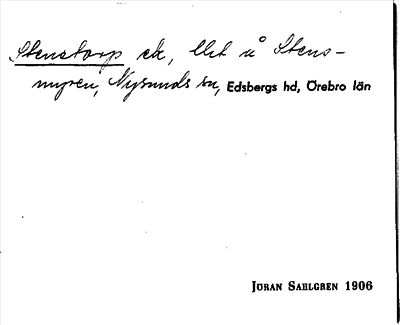 Stenstorp ek, Ubt å Stens-
myren, Nysunds sn, Edsbergs hd, Örebro län
JÖRAN SAHLGREN 1906